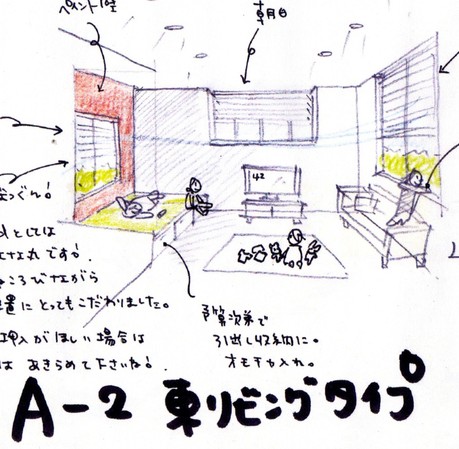 ペイント壁
42
としては
です!
ころびながら
置にとってもこだわりました。
押入がほしい場合は
は あきらめて下さいね!
予算次第で
引出し収納に。
オモチャ入れ。
A-2 東リビングタイプ